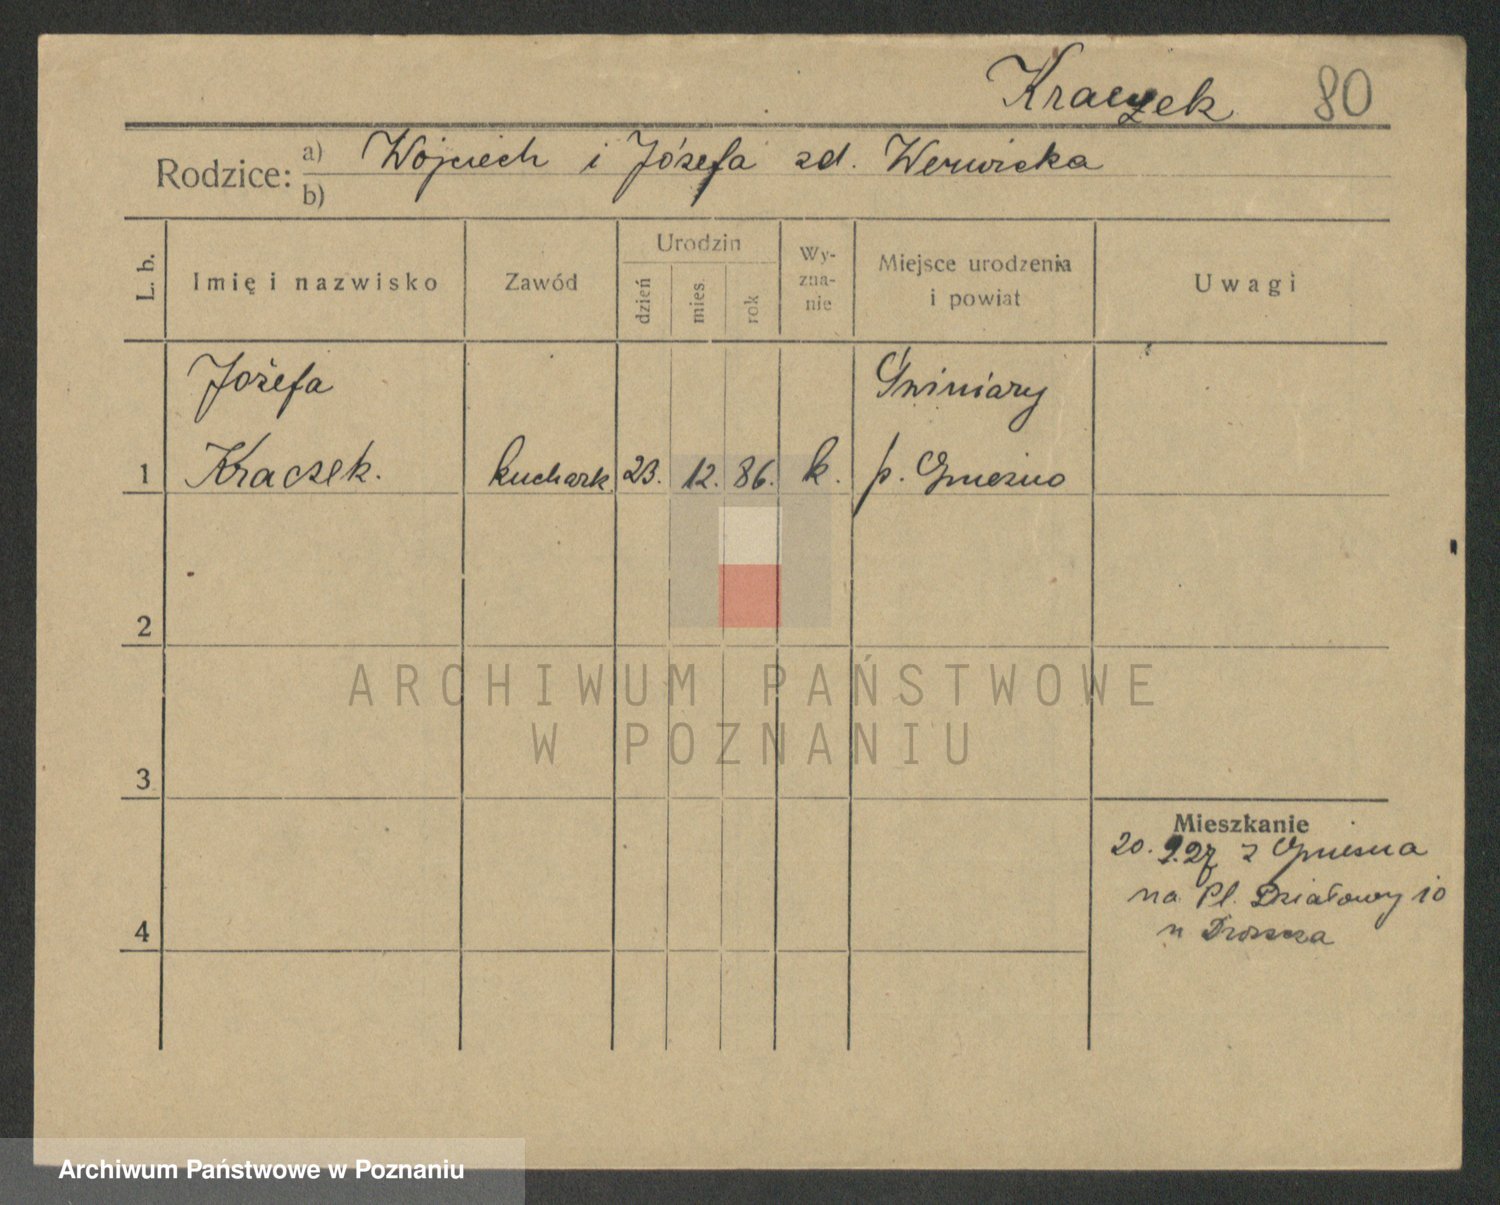 Kraczek 80
Rodzice: a) Wojciech i Józefa zd. Werwicka
b)
L. b. Imię i nazwisko Zawód Urodzin dzień mies. rok Wy-zna-nie Miejsce urodzenia i powiat Uwagi
Józefa Świniary
1 Kraczek. kuchark. 23. 12. 86. k. p. Gniezno
2
ARCHIWUM PAŃSTWOWE
W POZNANIU
3
Mieszkanie
20. 9. 27 z Gniezna
na Pl. Działowy 10
4 u
Archiwum Państwowe w Poznaniu